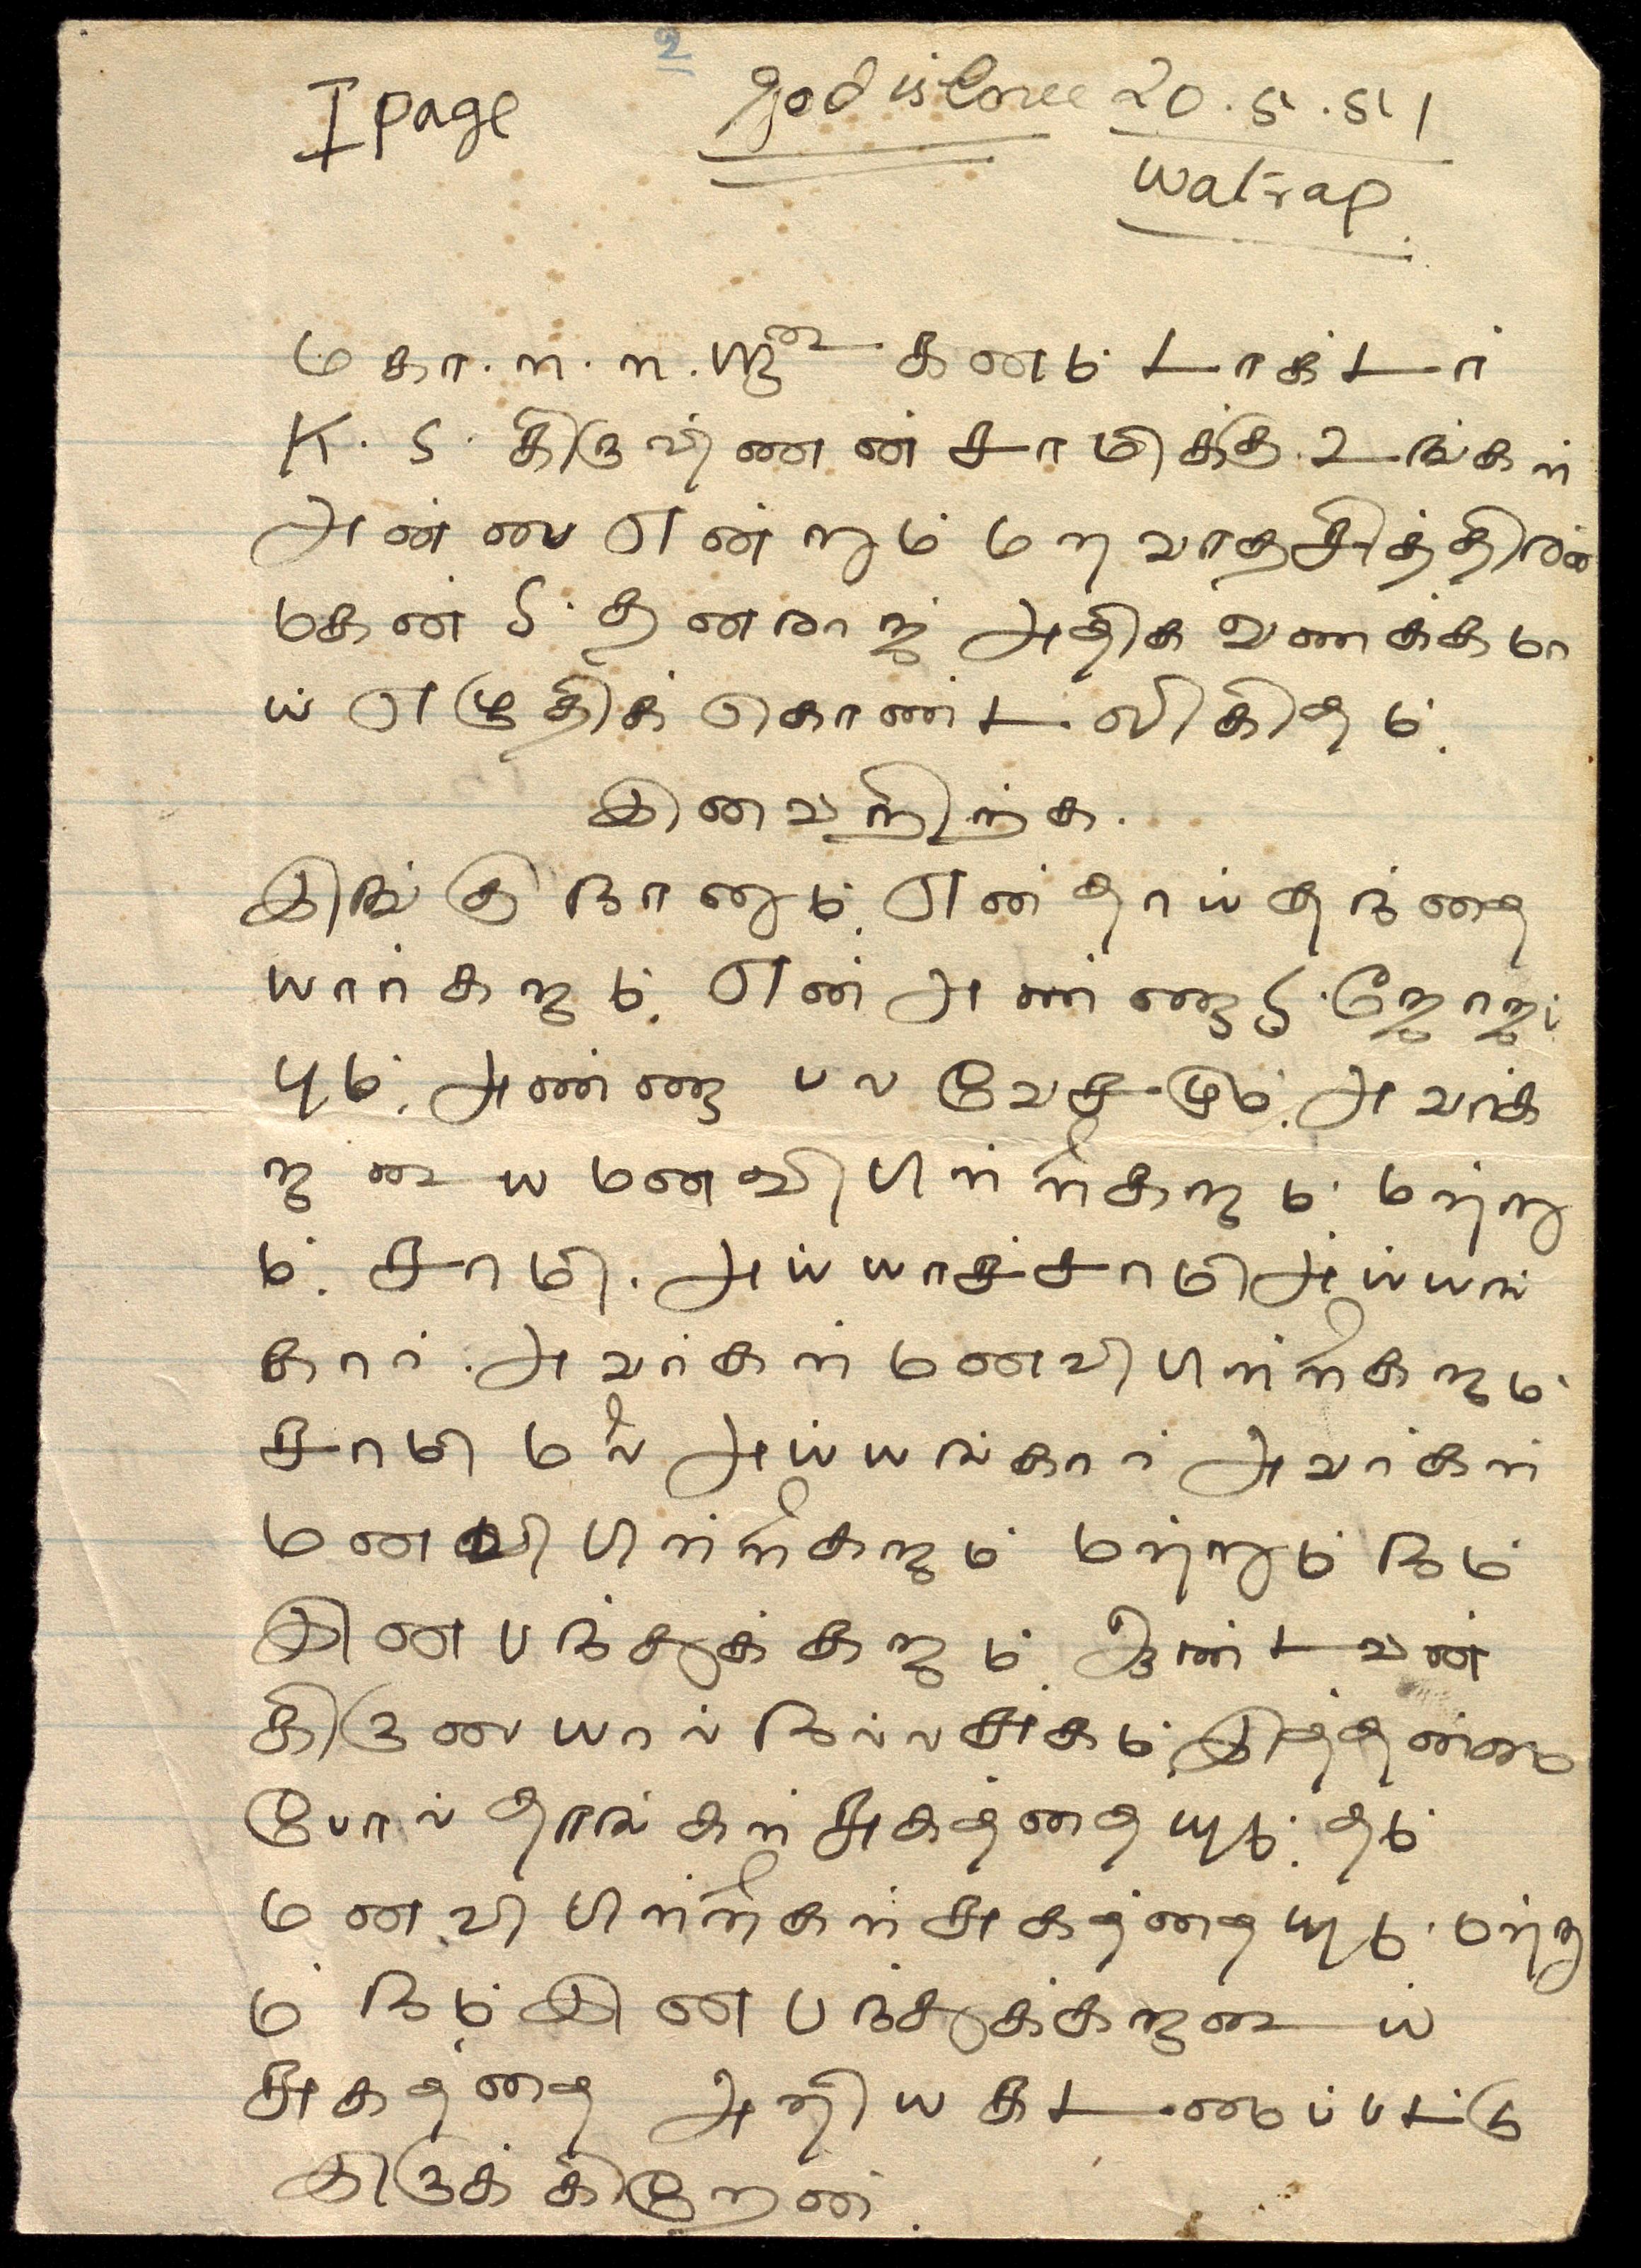 2
I page god is love 20.5.51
watrap
மகா.ள.ள.ஸ்ரீ கனம் டாக்டர்
K. S. கிருஷ்ணன் சாமிக்கு உங்கள்
அன்பை என்றும் மறவாத சித்திரை
மகன் S. தனராஜ் அதிக வணக்கமா
ய் எழுதிக் கொண்ட லிகிதம்.
இவைநிற்க.
இங்கு நானும். என் தாய் தந்தை
யார்களும். என் அண்ணா S. ஜோஜப்
பும். அண்ணா பலவேசமும். அவர்க
ளுடைய மனைவி பிள்ளைகளும். மற்று
ம். சாமி. அய்யாச்சாமி அய்யங்
கார். அவர்கள் மனைவி பிள்ளைகளும்
சாமி அய்யங்கார் அவர்கள்
மனைவி பிள்ளைகளும் மற்றும் நம்
இன பந்துக்களும். ஆண்டவன்
கிருபையால் நல்ல சுகம். இத்தன்மை
போல் தாங்கள் சுகத்தையும். தம்
மனைவி பிள்ளைகள் சுகத்தையும். மற்று
ம் நம் இன பந்துக்களுடைய
சுகத்தை அறிய கடமைப்பட்டு
இருக்கிறேன்.